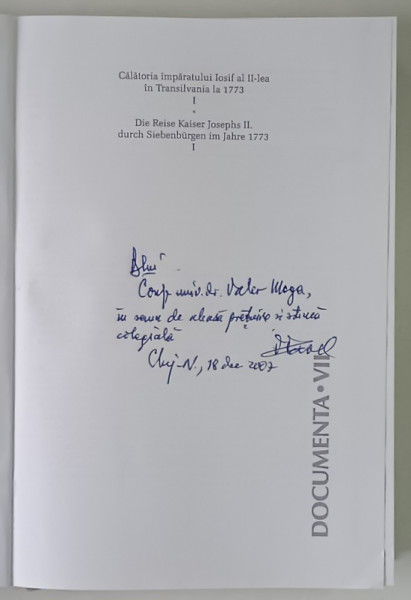 Călătoria împăratului Iosif al II-lea
în Transilvania la 1773
I
*
Die Reise Kaiser Josephs II.
durch Siebenbürgen im Jahre 1773
I
Dlui
Conf. univ. dr. Vasler Moga,
în semn de aleasă prețuire și stimă
colegială
Cluj-N., 18 dec 2007
DOCUMENTA • VII